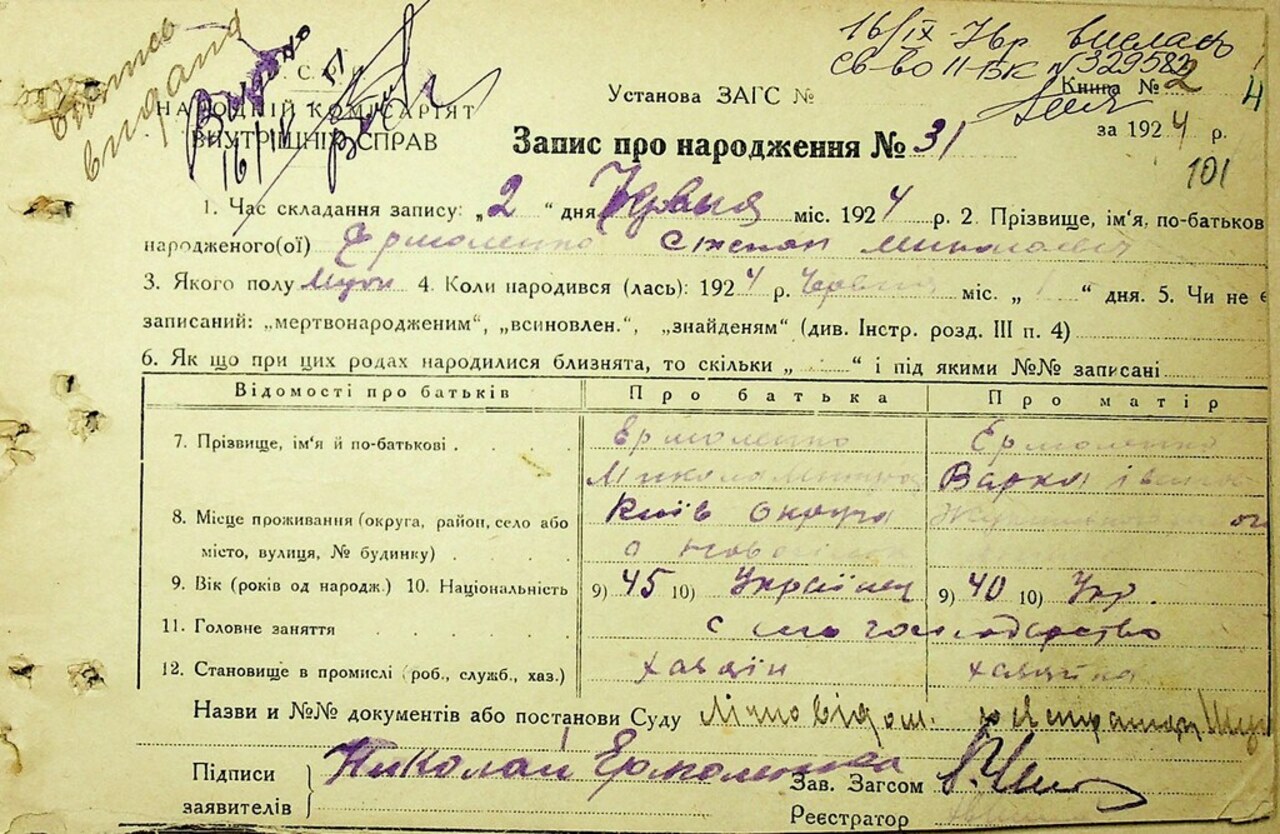 выпись
выдана
Видано
16/IV
16/IX Нвр выслась
Св-во II-БК № 329583
У.С.Р.Р.
НАРОДНІЙ КОМІСАРІЯТ
ВНУТРІШНІХ СПРАВ
Установа ЗАГС №
Книга № 2
4
за 1924 р.
101
Запис про народження № 31
1. Час складання запису: „2“ дня Червня міс. 1924 р. 2. Прізвище, ім‘я, по-батьков
народженого(ої) Єрмоленко Степан Миколаевич
3. Якого полу Муж 4. Коли народився (лась): 1924 р. Червня міс. „1“ дня. 5. Чи не є
записаний: „мертвонародженим“, „всиновлен.“, „знайденям“ (див. Інстр. розд. III п. 4)
6. Як що при цих родах народилися близнята, то скільки „ “ і під якими №№ записані
Відомості про батьків Про батька Про матір
7. Прізвище, ім‘я й по-батькові Ермоленко Єрмоленко
Микола Варка
8. Місце проживання (округа, район, село або Київ округа
місто, вулиця, № будинку) с
9. Вік (років од народж.) 10. Національність 9) 45 10) Українец 9) 40 10) Укр.
11. Головне заняття сель господарство
12. Становище в промислі (роб., служб., хаз.) хазяін хазяйка
Назви и №№ документів або постанови Суду Лічно відом.
Підписи
заявителів Николай Ермоленко
Зав. Загсом
Реєстратор